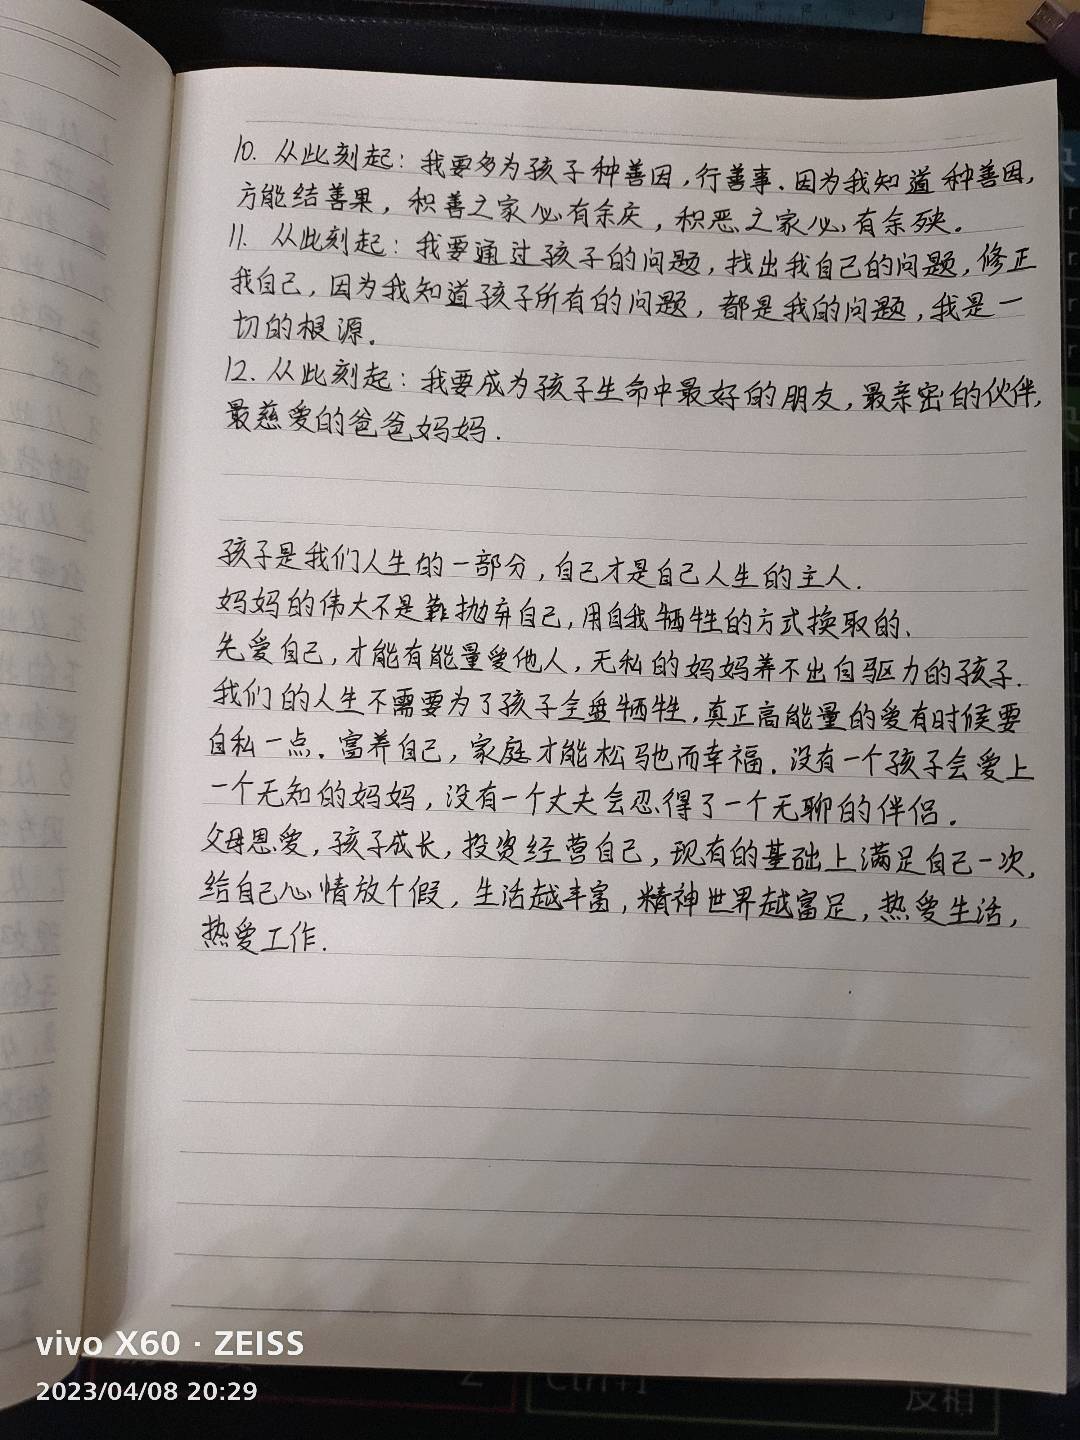 10. 从此刻起：我要多为孩子种善因，行善事.因为我知道种善因，
方能结善果，积善之家必有余庆，积恶之家必有余殃。
11. 从此刻起：我要通过孩子的问题，找出我自己的问题，修正
我自己，因为我知道孩子所有的问题，都是我的问题，我是一
切的根源.
12. 从此刻起：我要成为孩子生命中最好的朋友，最亲密的伙伴，
最慈爱的爸爸妈妈.
孩子是我们人生的一部分，自己才是自己人生的主人.
妈妈的伟大不是靠抛弃自己，用自我牺牲的方式换取的、
先爱自己，才能有能量爱他人，无私的妈妈养不出自驱力的孩子.
我们的人生不需要为了孩子全盘牺牲，真正高能量的爱有时候要
自私一点.富养自己，家庭才能松驰而幸福.没有一个孩子会爱上
一个无知的妈妈，没有一个丈夫会忍得了一个无聊的伴侣.
父母恩爱，孩子成长，投资经营自己，现有的基础上满足自己一次，
给自己心情放个假，生活越丰富，精神世界越富足，热爱生活，
热爱工作.
Ctrl+1
反相
vivo X60 · ZEISS
2023/04/08 20:29